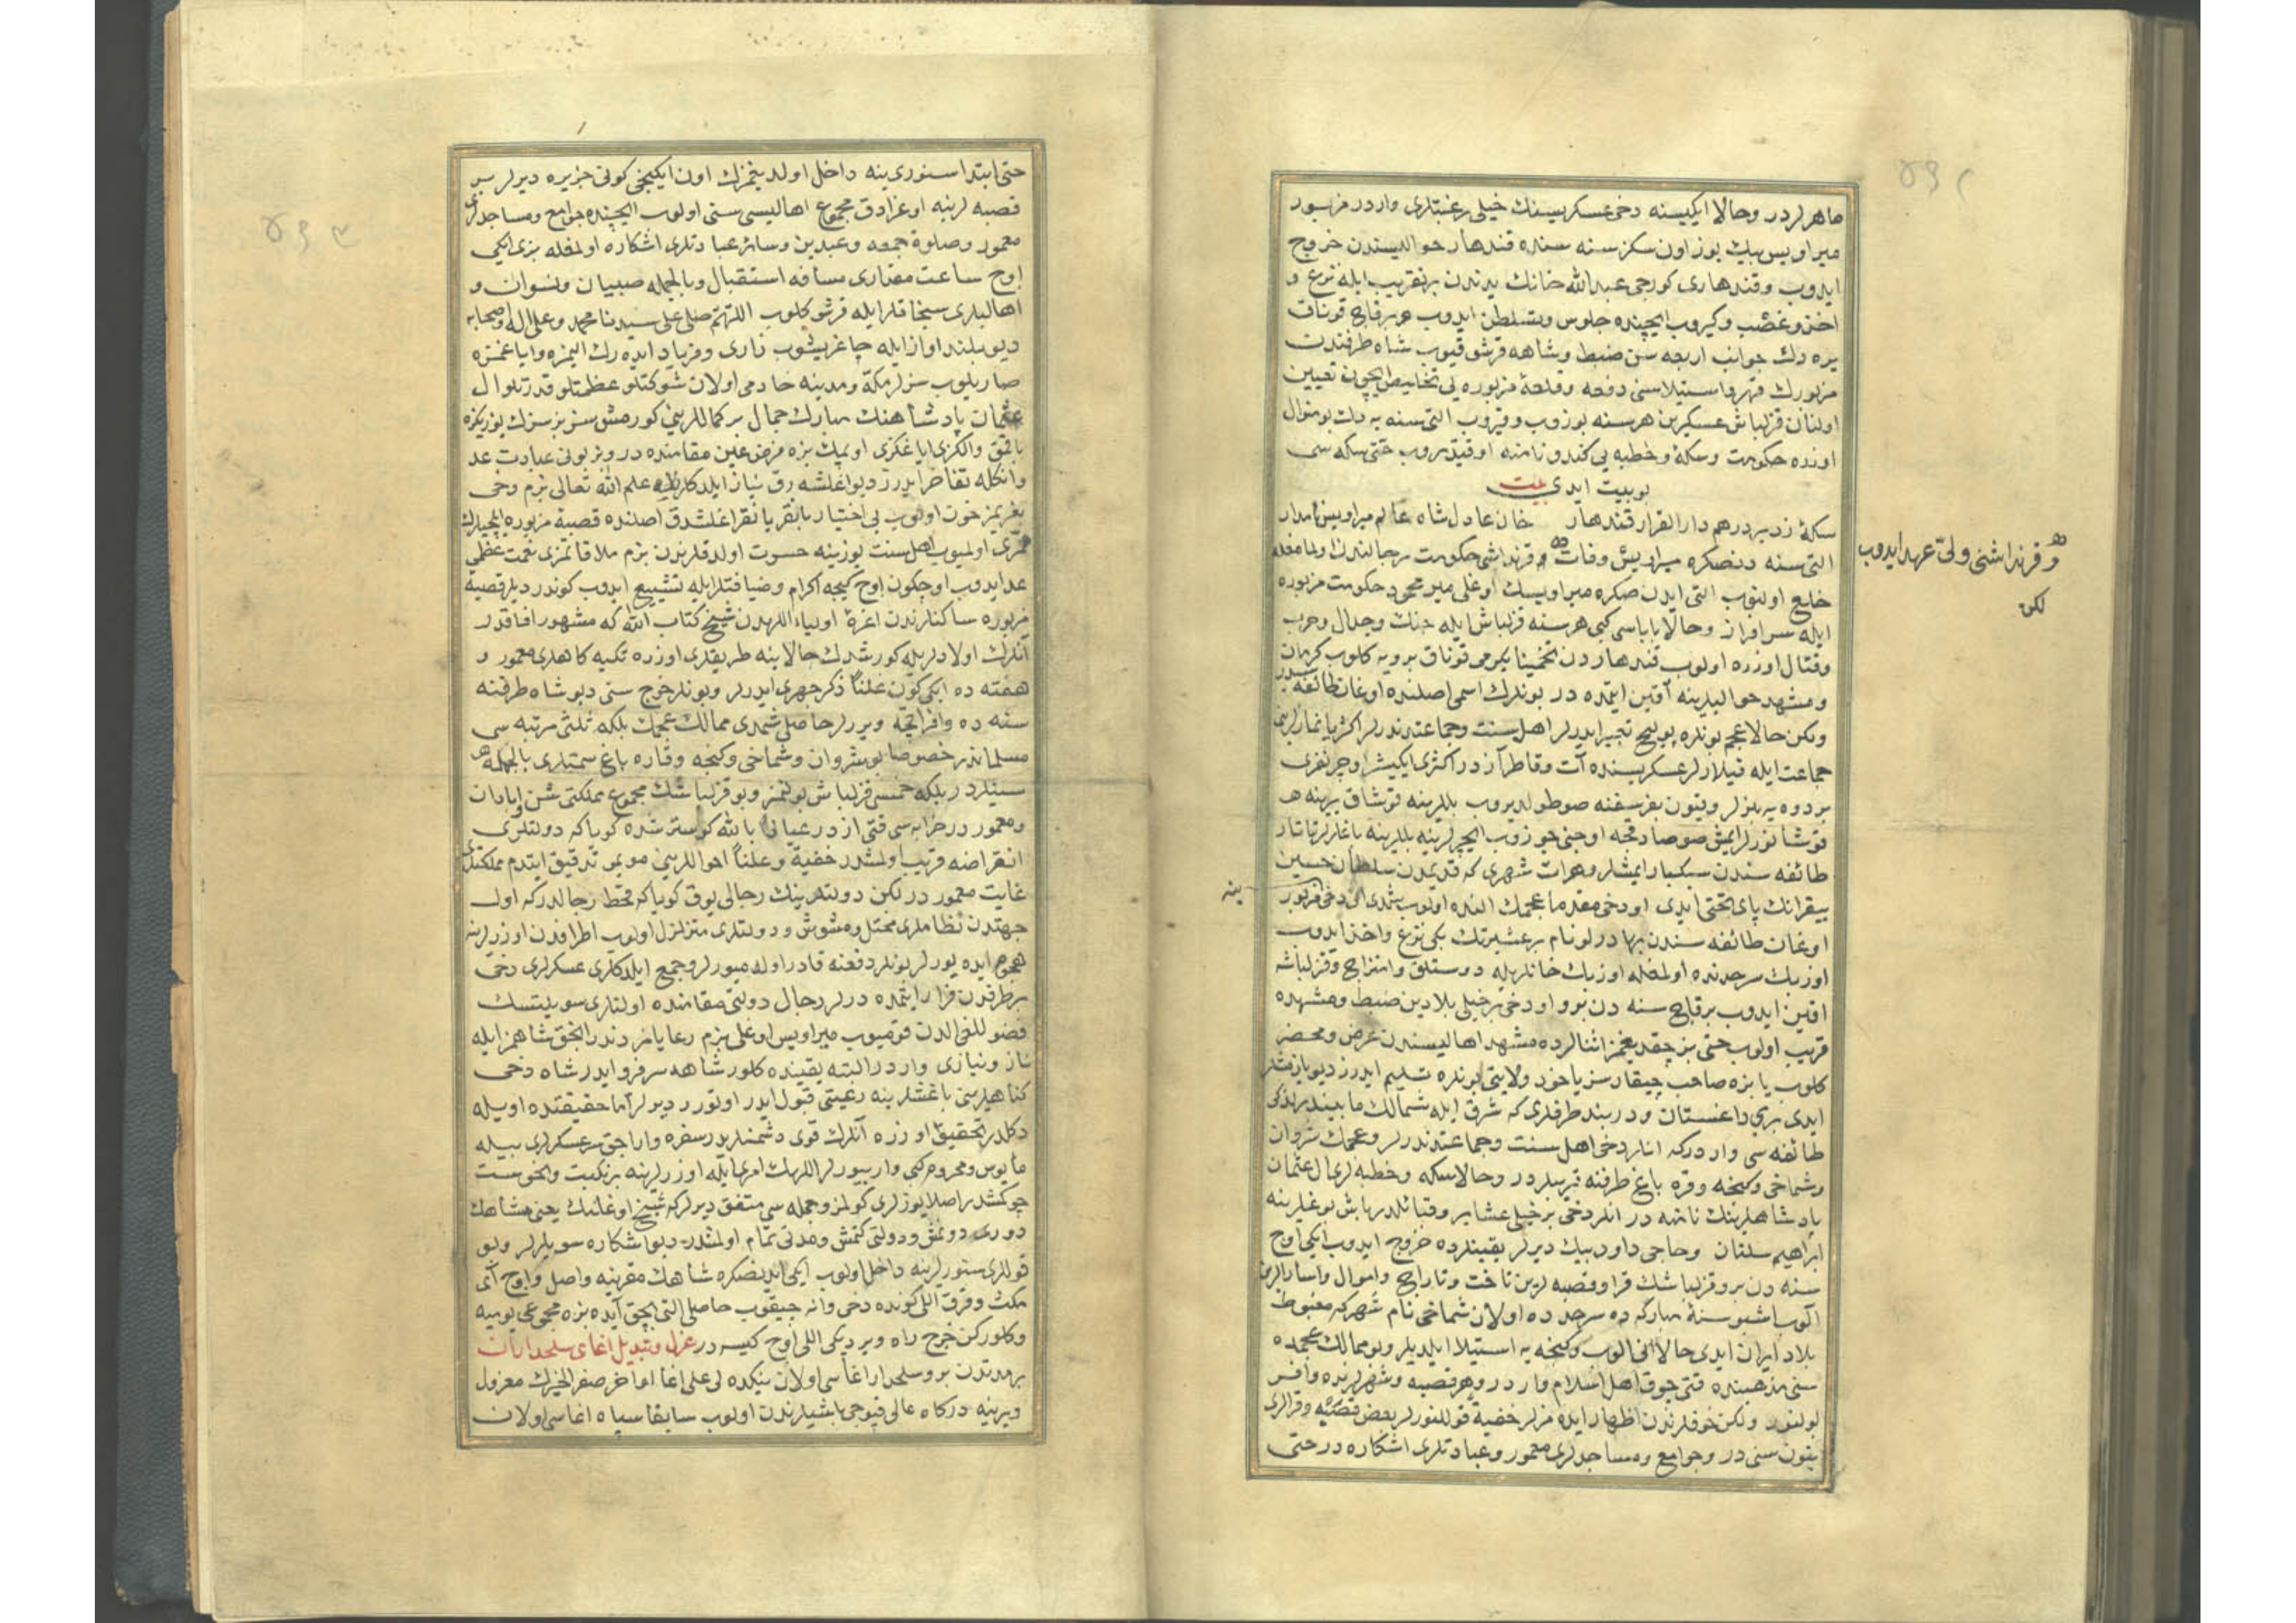 ماهرلردر وحالا ايكيسنه دخى عسكريسنك خيلى رغبتلرى واردر مزبور
ميراويس بيك يوز اون سكز سنه سنده قندهار حواليسندن خروج
ايدوب وقندهارى كورجى عبدالله خانك يدندن برتقريب ايله نزع و
اخذ وغصب وكيروب ايچنده جلوس وتسلطن ايدوب هر برقاچ قوناق
يره دك جوانب اربعه سن ضبط وشاهه قرشو قيوب شاه طرفندن
مزبورك قهر واستيلاسنى دفعه وقلعهٔ مزبوره يى تخليص ايچون تعيين
اولنان قزلباش عسكرين هر سنه بوزوب وقيروب التى سنه يه دك بو منوال
اوزره حكومت وسكه وخطبه يى كندو نامنه اوقيتديروب حتى سكه سى
بو بيت ايدى بيت
سكهٔ زد بر درهم دار القرار قندهار خان عادل شاه عالم ميراويس نامدار
التى سنه دنصكره ميراويس وفات و قرنداشى حكومت رجالندن اولمامغله
وقرنداشنى ولىّ عهد ايدوب
لكن
خلع اولنوب التى ايدن صكره ميراويسك اوغلى مير محمود حكومت مزبوره
ايله سرافراز وحالا باباسى كبى هر سنه قزلباش ايله جنك وجدال وحرب
وقتال اوزره اولوب قندهاردن تخمينا يكرمى قوناق برويه كلوب كرمان
ومشهد حواليلرينه آقين ايتمده در بونلرك اسمى اصلنده اوغان طائفه سيدر
ولكن حالا عجم بونلره بلوچ تعبير ايدرلر اهل سنت وجماعتدندرلر اكثريا نمازلرينى
جماعت ايله قيلارلر عسكريسنده آت وقاطر آز در اكثرى ايكيشر اوچر نفرى
بر دوه يه بنرلر وبتون بغرسغنه صو طولديروب بللرينه قوشاق يرينه
قوشانورلر ايمش صوصادقجه اوجنى چوزوب ايچرلر ينه بللرينه باغلرلر تاتار
طائفه سندن سبكبار ايمشلر وهرات شهرى كه قديمدن سلطان حسين
بيقرانك پاى تختى ايدى او دخى مقدما عجمك النده اولوب شمدى انى دخى مزبور
ينه
اوغان طائفه سندن بهادرلو نام بر عشيرتك بكى نزع واخذ ايدوب
اوزبك سرحدنده اولمغله اوزبك خانلريله دوستلق وامتزاج وقزلباشه
اقين ايدوب برقاچ سنه دن برو او دخى بر خيلى بلادين ضبط ومشهده
قريب اولوب حتى بز چقديغمز اثنالرده مشهد اهاليسندن عرض ومحضر
كلوب يا بزه صاحب چيقارسز يا خود ولايتى بونلره تسليم ايدرز ديو يازمشلر
ايدى برى داغستان ودربند طرفلرى كه شرق ايله شمالك مابيننده لزكى
طائفه سى واردركه انلر دخى اهل سنت وجماعتدندرلر وعجمك شروان
وشماخى وكنجه وقره باغ طرفنه قريبلردر وحالا سكه وخطبه لرى آل عثمان
پادشاهلرينك نامنه در انلر دخى بر خيلى عشاير وقبائلدر باش بوغلرينه
ابراهيم سلتان وحاجى داود بيك ديرلر يقينلرده خروج ايدوب ايكى اوچ
سنه دن برو قزلباشك قرا وقصبه لرين تاخت وتاراج واموال واسارالرين
آلوب اشبو سنهٔ مباركه ده سرحد ده اولان شماخى نام شهر كه مغبوط
بلاد ايران ايدى حالا انى الوب وكنجه يه استيلا ايلديلر وبو ممالك عجمده
سنى مذهبنده قتى چوق اهل اسلام واردر وهر قصبه وشهرلرنده وافر
بولنور ولكن خوفلرندن اظهار ايده مزلر خفيةً قوللنورلر بعض قصبه وقرالرى
بتون سنى در وجوامع ومساجدلرى معمور وعبادتلرى اشكاره در حتى
حتى ابتدا سنورينه داخل اولديغمزك اون ايكنجى كونى جزيره ديرلر بر
قصبه لرينه اوغرادق مجموع اهاليسى سنى اولوب ايچنده جوامع ومساجدلرى
معمور وصلوة جمعه وعيدين وسائر عبادتلرى اشكاره اولمغله بزى ايكى
اوچ ساعت مقدارى مسافه استقبال وبالجمله صبيان ونسوان و
اهاليلرى سنجاقلر ايله قرشو كلوب اللهم صلى على سيدنا محمد وعلى اله واصحابه
ديو بلند اواز ايله چاغريشوب زارى وفرياد ايده رك اليمزه واياغمزه
صاريلوب سزلر مكه ومدينه خادمى اولان شوكتلو عظمتلو قدرتلو ال
عثمان پادشاهنك مبارك جمال بر كماللرينى كورمشسز بز سزك يوزيكزه
باقمق والكزى اياغكزى اوپمك بزه فرض عين مقامنده در وبز بونى عبادت عد
وانكله تفاخر ايدرز ديو اغلشه رق نياز ايلدكلرنده علم الله تعالى بزم دخى
بغريمز خون اولوب بى اختيار باقه باقه اغلشدق اصلنده قصبهٔ مزبوره ايلچيلرك
ممرى اولميوب اهل سنت يوزينه حسرت اولدقلرندن بزم ملاقاتمزى نعمت عظمى
عد ايدوب اوچ كون اوچ كيجه اكرام وضيافتلر ايله تشييع ايدوب كوندرديلر قصبهٔ
مزبوره ساكنلرندن اعزهٔ اولياء اللهدن شيخ كتاب الله كه مشهور افاقدر
آنلرك اولادلريله كورشدك حالا ينه طريقلرى اوزره تكيه كاهلرى معمور و
هفته ده ايكى كون علناً ذكر جهرى ايدرلر وبونلر خرج سنى ديو شاه طرفنه
سنه ده وافر اقچه ويررلر حاصلى شمدى ممالك عجمك بلكه ثلثى مرتبه سى
مسلماندر خصوصا بو شروان وشماخى وكنجه وقاره باغ سمتلرى بالجمله
سنيلردر بلكه خمسى قزلباش بولنمز وبو قزلباشك مجموع مملكتى شن وابادان
ومعمور در خرابه سى قتى از در عياذا بالله كوسترشده كويا كه دولتلرى
انقراضه قريب اولمشدر خفية وعلناً احواللرينى مو بمو تدقيق ايتدم مملكتلرى
غايت معمور در لكن دولتلرينك رجالى يوق كويا كه قحط رجالدركه اول
جهتدن نظاملرى مختل ومشوش ودولتلرى متزلزل اولوب اطرافدن اوزرلرينه
هجوم ايده يورلر بونلر دفعنه قادر اوله ميورلر وجمع ايلدكلرى عسكرلرى دخى
بر طرفدن فرار ايتمده درلر رجال دولتى مقامنده اولنلرى سويلتسك
فضوللغى الدن قوميوب ميراويس اوغلى بزم رعايامزدندر انجق شاهمز ايله
ناز ونيازى واردر البته يقينده كلور شاهه سرفرو ايدر شاه دخى
كناهلرينى باغشلر ينه رعيتلى قبول ايدر اوتورر ديرلر اما حقيقتده اويله
دكلدر تحقيق اوزره آنلرك قوى دشمنلريدر سفره وارا جق عسكرلرى بيله
مأيوس ومحروم كبى واريورلر اللهك امرى ايله اوزرلرينه بر نكبت ونحوست
چوكمشدر اصلا يوزلرى كولمز وجمله سى متفق ديرلركه شيخ اوغلنك يعنى شاهك
دورى دونمش ودولتى كتمش ومدتى تمام اولمشدر ديو اشكاره سويلرلر وبو
قوللرى سنورلرينه داخل اولوب ايكى ايدنصكره شاهك مقرينه واصل واوچ آى
مكث وقرق اللى كونده دخى وانه چيقوب حاصلى التى بچق آيده بزه مجموعى يوميه
وكلوركن خرج راه ويرديكى اللى اوچ كيسه در عزل وتبديل اغاى سلحداران
بر مدتدن برو سلحدار اغاسى اولان نيكده لى على اغا اواخر صفر الخيرك معزول
ويرينه دركاه عالى قپوجى باشيلرندن اولوب سابقا سپاه اغاسى اولان